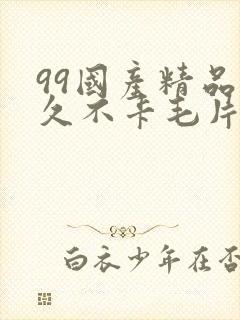 99國産精品
久不卡毛片
白衣少年在否